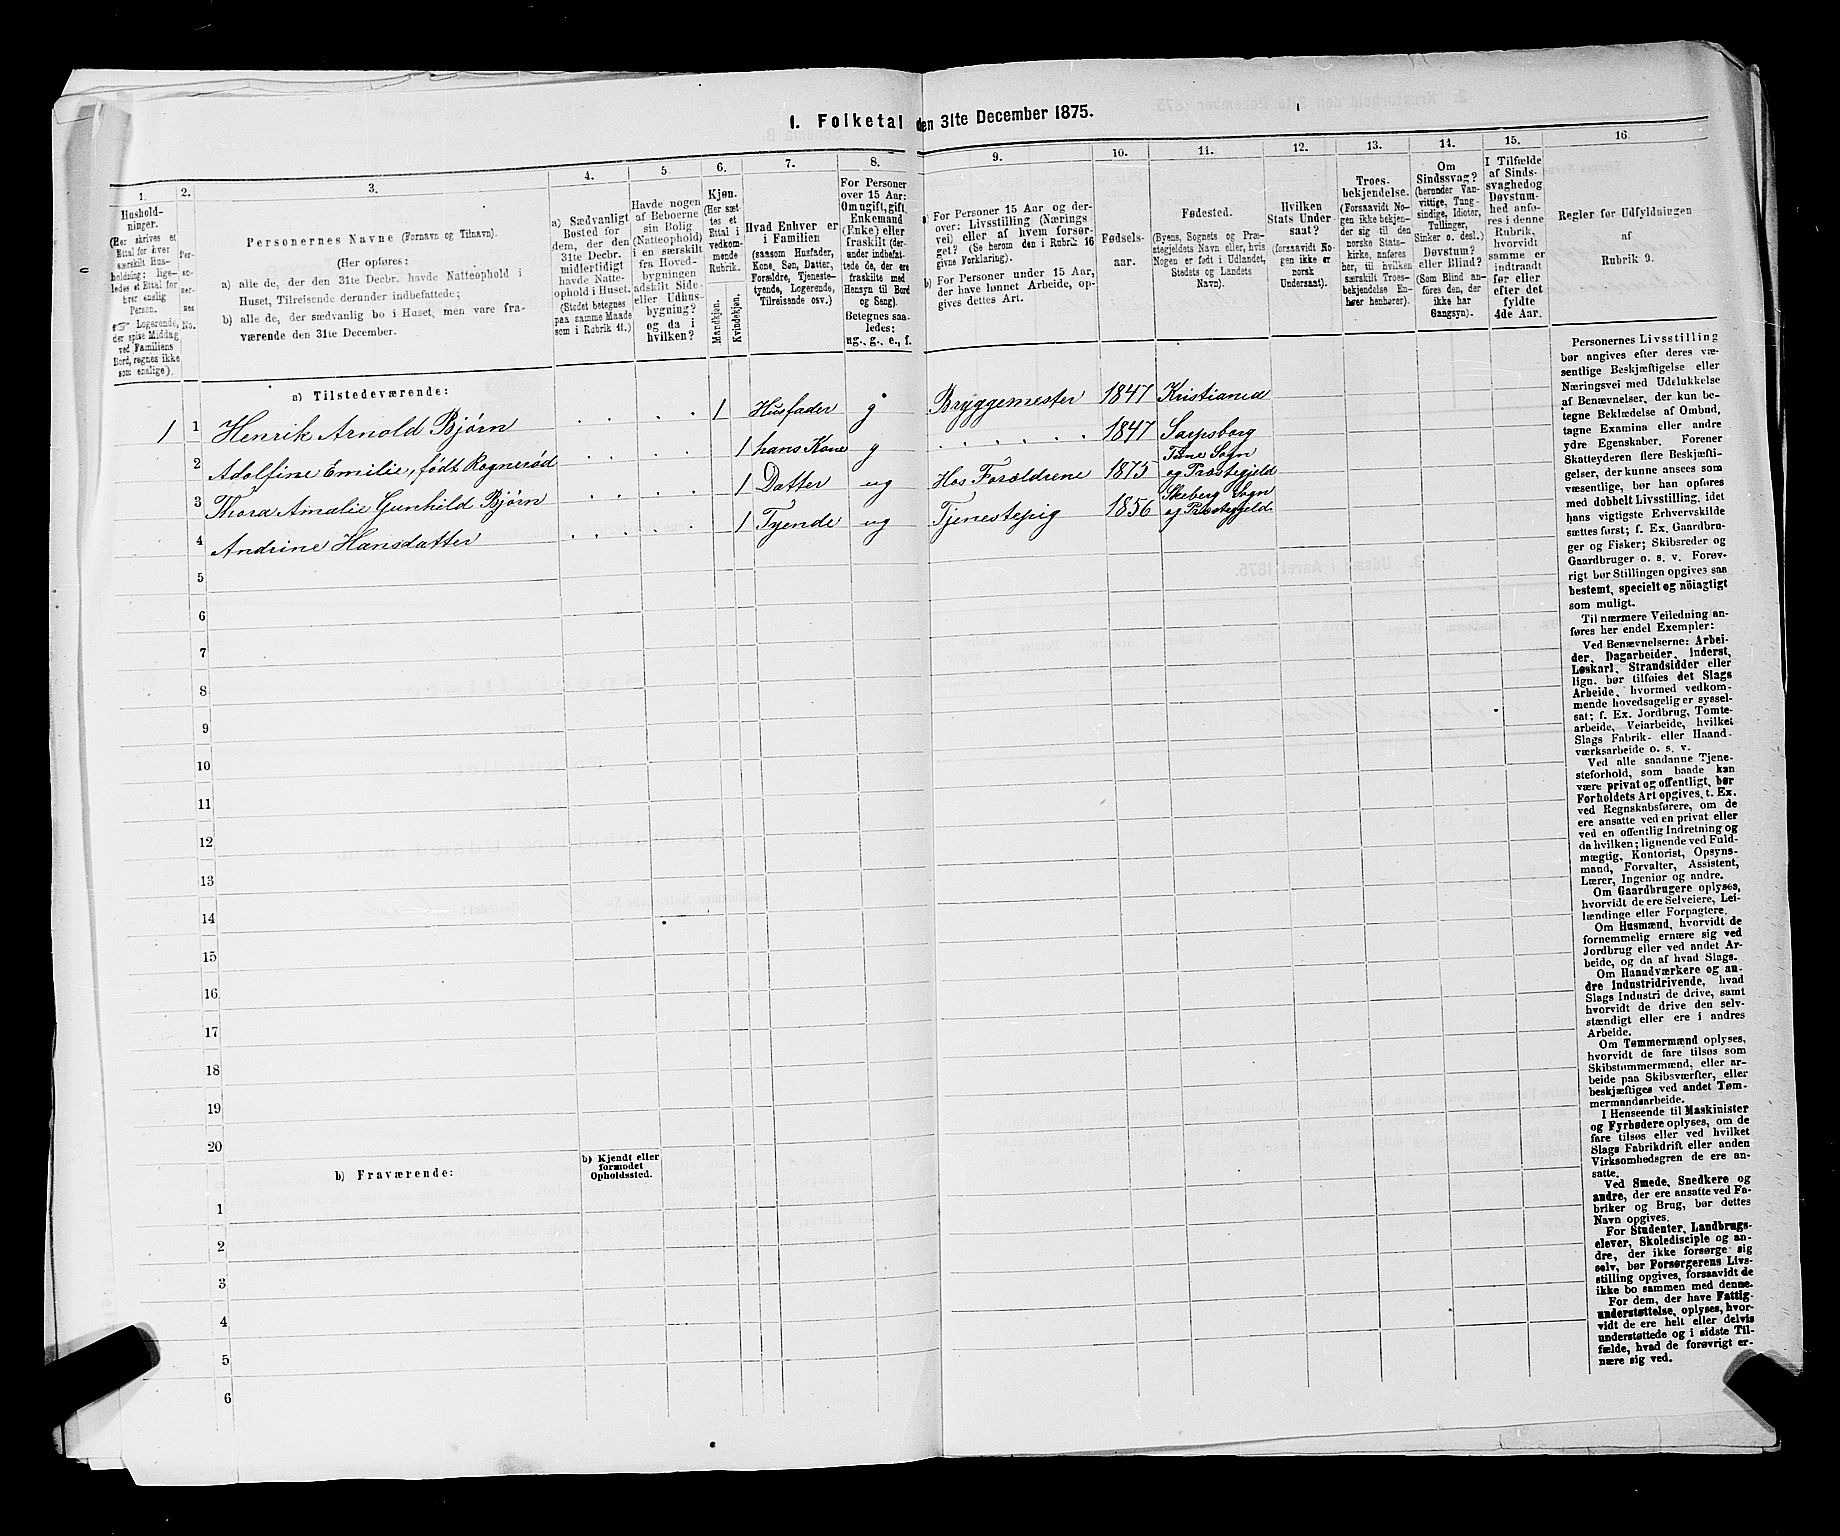 1. Folketal den 31te December 1875.
1. 2. 3. 4. 5 6. 7. 8. 9. 10. 11. 12. 13. 14. 15. 16
Hushold-
ninger.
(Her skrives et
Ettal for hver
særskilt Hus-
holdning; lige-
ledes et Ettal for
hver enslig
Person.
☞ Logerende,
der spise Middag
ved Familiens
Bord, regnes ikke
som enslige).
Per-
so-
ner-
nes
No.
Personernes Navne (Fornavn og Tilnavn).
(Her opføres:
a) alle de, der den 31te Decbr. havde Natteophold i
Huset, Tilreisende derunder indbefattede;
b) alle de, der sædvanlig bo i Huset, men vare fra-
værende den 31te December.
a) Sædvanligt
Bosted for
dem, der den
31te Decbr.
midlertidigt
havde Natte-
ophold i Huset.
(Stedet betegnes
paa samme Maade
som i Rubrik 11.)
Havde nogen
af Beboerne
sin Bolig
(Natteophold)
i en særskilt
fra Hoved-
bygningen
adskilt Side-
eller Udhus-
bygning?
og da i
hvilken?
Kjøn.
(Her sæt-
tes et
Ettal i
vedkom-
mende
Rubrik.
Mandkjøn.
Kvindekjøn.
Hvad Enhver er
i Familien
(saasom Husfader,
Kone, Søn, Datter,
Forældre, Tjeneste-
tyende, Logerende,
Tilreisende osv.)
For Personer
over 15 Aar:
Om ugift, gift,
Enkemand
(Enke) eller
fraskilt (der-
under indbefat-
tede de, der ere
fraskilte med
Hensyn til Bord
og Seng).
Betegnes saa-
ledes:
ug., g., e., f.
a) For Personer 15 Aar og der-
over: Livsstilling (Nærings
vei) eller af hvem forsør-
get? (Se herom den i Rubrik 16
givne Forklaring).
b) For Personer under 15 Aar,
der have lønnet Arbeide, op-
gives dettes Art.
Fødsels-
aar.
Fødested.
(Byens, Sognets og Præ-
stegjeldets Navn eller, hvis
Nogen er født i Udlandet,
Stedets og Landets
Navn).
Hvilken
Stats Under-
saat?
(forsaavidt No-
gen ikke er
norsk
Undersaat).
Troes-
bekjendelse.
(Forsaavidt No-
gen ikke bekjen-
der sig til den
norske Stats-
kirke, anføres
her, til hvilken
særskilt Troes-
bekjendelse En-
hver henhører).
Om
Sindssvag?
(herunder Van-
vittige, Tung-
sindige, Idioter,
Tullinger,
Sinker o. desl.)
Døvstum?
eller Blind?
(Som Blind an-
føres den, der
ikke har
Gangsyn).
I Tilfælde
af Sinds-
svaghed og
Døvstum-
hed anfø-
res i denne
Rubrik,
hvorvidt
samme er
indtraadt
før eller
efter det
fyldte
4de Aar.
Regler før Udfyldningen
af
Rubrik 9.
a) Tilstedeværende:
1 1 Henrik Arnold Bjørn 1 Husfader g Bryggemester 1847 Kristiania
2 Adolfine Emilie, født Rognerød 1 hans Kone g 1847 Sarpsborg
3 Thora Amalie Gunhild Bjørn 1 Datter ug Hos Forældrene 1875 Tune Sogn
og Præstegjeld
4 Andrine Hansdatter 1 Tyende ug Tjenestepig 1856 Skeberg Sogn
og Præstegjeld
5
6
7
8
9
10
11
12
13
14
15
16
17
18
19
20
b) Fraværende:
b) Kjendt eller
formodet
Opholdssted.
1
2
3
4
5
6
Personernes Livsstilling
bør angives efter deres væ-
sentlige Beskjæftigelse eller
Næringsvei med Udelukkelse
af Benævnelser, der kun be-
tegne Beklædelse af Ombud,
tagne Examina eller andre
ydre Egenskaber. Forener
Skatteyderen flere Beskjæfti-
gelser, der kunne ansees som
væsentlige, bør han opføres
med dobbelt Livsstilling, idet
hans vigtigste Erhvervskilde
sættes først; f. Ex. Gaardbru-
ger og Fisker; Skibsreder og
Gaardbruger o. s. v. Forøv-
rigt bør Stillingen opgives saa
bestemt, specielt og nöiagtigt
som muligt.
Til nærmere Veiledning an-
føres her endel Exempler:
Ved Benævnelserne: Arbei-
der, Dagarbeider, Inderst,
Løskarl, Strandsidder eller
lign. bør tilføies det Slags
Arbeide, hvormed vedkom-
mende hovedsagelig er syssel-
sat; f. Ex. Jordbrug, Tomte-
arbeide, Veiarbeide, hvilket
Slags Fabrik- eller Haand-
værksarbeide o. s. v.
Ved alle saadanne Tjene-
steforhold, som baade kan
være privat og offentligt, bør
Forholdets Art opgives, t. Ex.
ved Regnskabsførere, om de
ere ansatte ved en privat eller
ved en offentlig Indretning og
da hvilken; lignende ved Fuld-
mægtig, Kontorist, Opsyns-
mand, Forvalter, Assistent,
Lærer, Ingeniør og andre.
Om Gaardbrugere oplyses,
hvorvidt de ere Selveiere, Lei-
lændinge eller Forpagtere.
Om Husmænd, hvorvidt de
fornemmelig ernære sig ved
Jordbrug eller ved andet Ar-
beide, og da af hvad Slags.
Om Haandværkere og an-
dre Industridrivende, hvad
Slags Industri de drive, samt
hvorvidt de drive den selv-
stændigt eller ere i andres
Arbeide.
Om Tømmermænd oplyses,
hvorvidt de fare tilsøs som
Skibstømmermænd, eller ar-
beide paa Skibsværfter, eller
beskjæftiges ved andet Tøm-
mermandsarbeide.
I Henseende til Maskinister
og Fyrbødere oplyses, om de
fare tilsøs eller ved hvilket
Slags Fabrikdrift eller anden
Virksomhedsgren de ere an-
satte.
Ved Smede, Snedkere og
andre, der ere ansatte ved Fa-
briker og Brug, bør dettes
Navn opgives.
For Studenter, Landbrugs-
elever, Skoledisciple og an-
dre, der ikke forsørge sig
selv, bør Forsørgerens Livs-
stilling opgives, forsaavidt de
ikke bo sammen med denne.
For dem, der have Fattig-
understøttelse, oplyses, hvor-
vidt de ere helt eller delvis
understøttede og i sidste Til-
fælde, hvad de forøvrigt er-
nære sig ved.